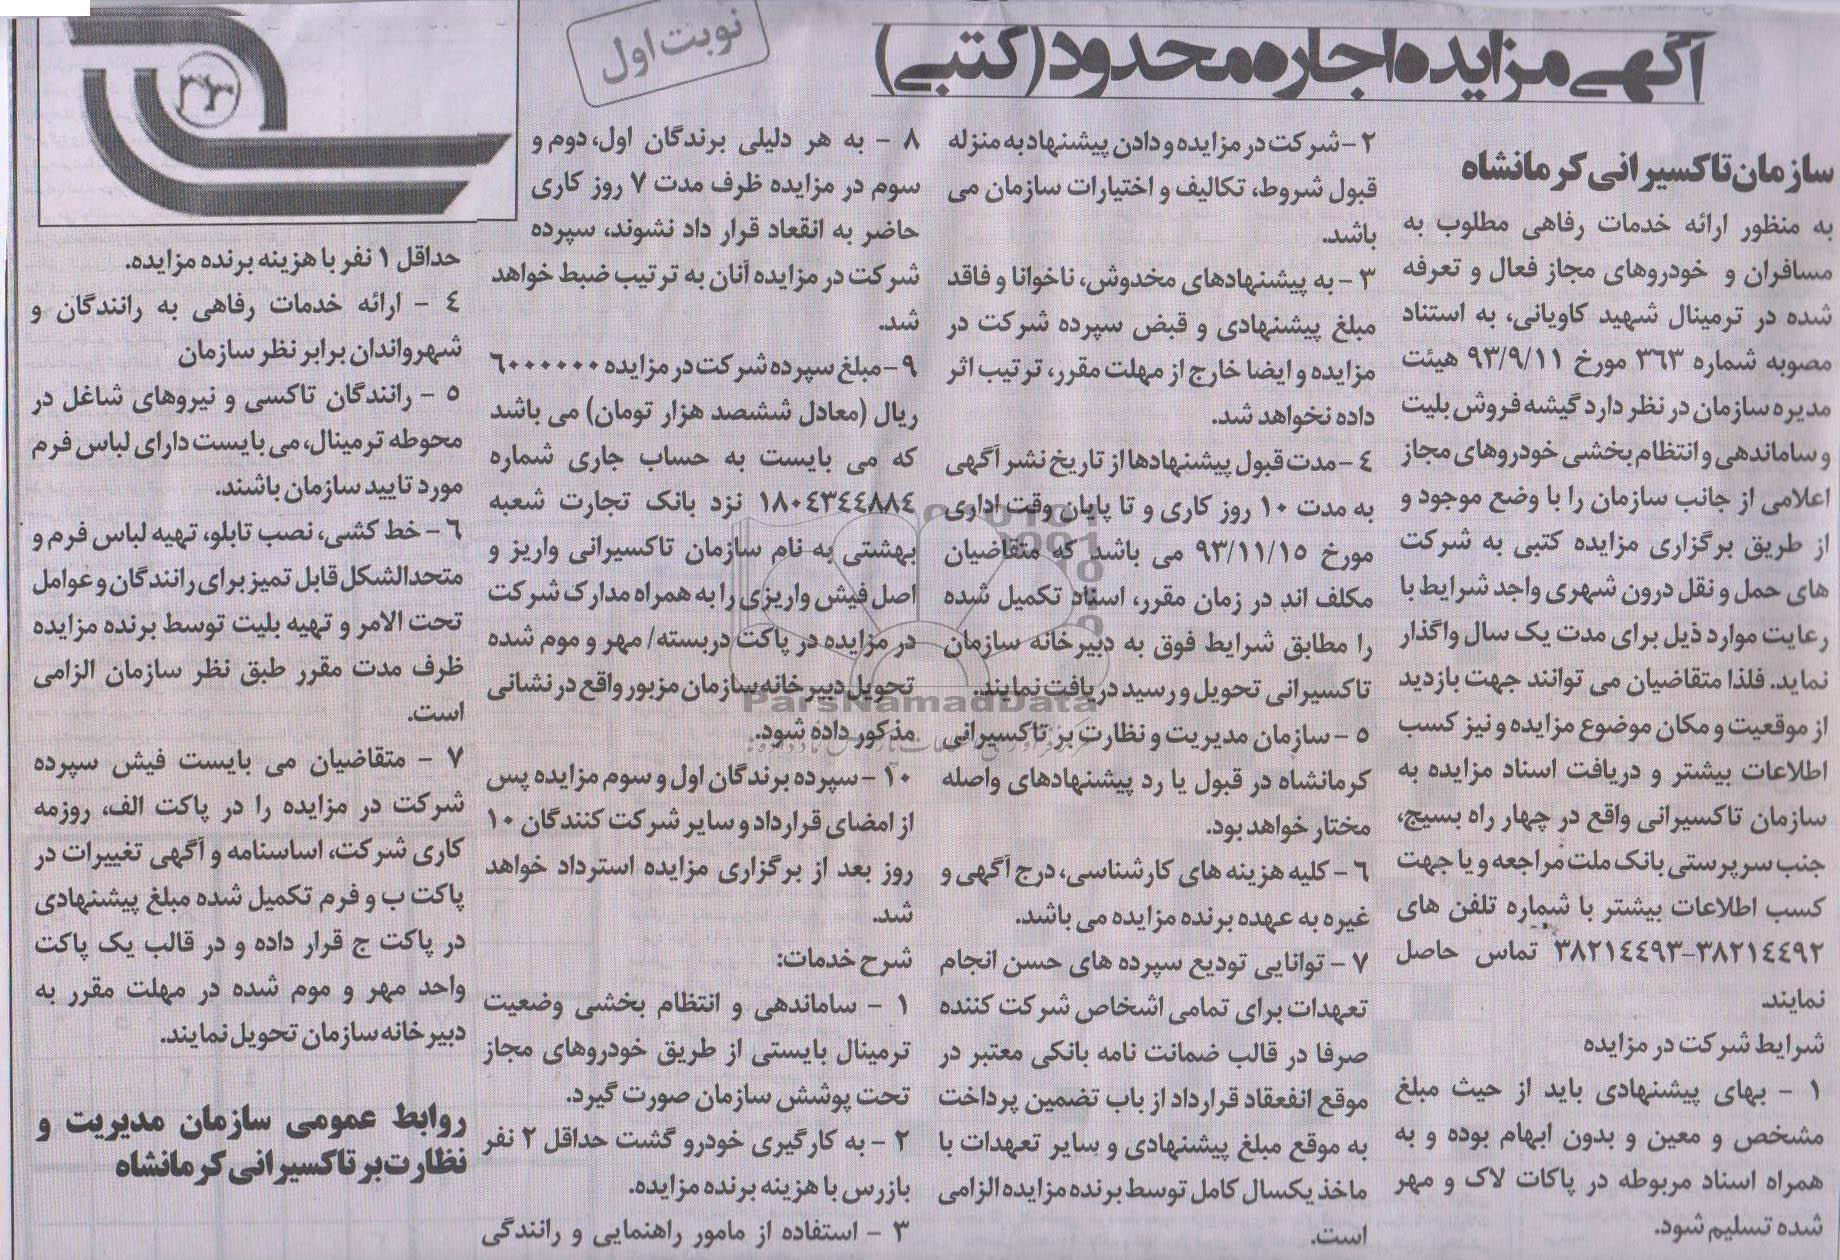 آگهی مزایده اجاره محدود (کتبی)
نوبت اول
سازمان تاکسیرانی کرمانشاه
به منظور ارائه خدمات رفاهی مطلوب به
مسافران و خودروهای مجاز فعال و تعرفه
شده در ترمینال شهید کاویانی، به استناد
مصوبه شماره ۳۶۳ مورخ ۹۳/۹/۱۱ هیئت
مدیره سازمان در نظر دارد گیشه فروش بلیت
و ساماندهی و انتظام بخشی خودروهای مجاز
اعلامی از جانب سازمان را با وضع موجود و
از طریق برگزاری مزایده کتبی به شرکت
های حمل و نقل درون شهری واجد شرایط با
رعایت موارد ذیل برای مدت یک سال واگذار
نماید. فلذا متقاضیان می توانند جهت بازدید
از موقعیت و مکان موضوع مزایده و نیز کسب
اطلاعات بیشتر و دریافت اسناد مزایده به
سازمان تاکسیرانی واقع در چهار راه بسیج،
جنب سرپرستی بانک ملت مراجعه و یا جهت
کسب اطلاعات بیشتر با شماره تلفن های
۳۸۲۱٤٤۹۲-۳۸۲۱٤٤۹۳ تماس حاصل
نمایند.
شرایط شرکت در مزایده
۱ - بهای پیشنهادی باید از حیث مبلغ
مشخص و معین و بدون ابهام بوده و به
همراه اسناد مربوطه در پاکات لاک و مهر
شده تسلیم شود.
۲- شرکت در مزایده و دادن پیشنهاد به منزله
قبول شروط، تکالیف و اختیارات سازمان می
باشد.
۳ - به پیشنهادهای مخدوش، ناخوانا و فاقد
مبلغ پیشنهادی و قبض سپرده شرکت در
مزایده و ایضا خارج از مهلت مقرر، ترتیب اثر
داده نخواهد شد.
٤ - مدت قبول پیشنهادها از تاریخ نشر آگهی
به مدت ۱۰ روز کاری و تا پایان وقت اداری
مورخ ۹۳/۱۱/۱۵ می باشد که متقاضیان
مکلف اند در زمان مقرر، اسناد تکمیل شده
را مطابق شرایط فوق به دبیرخانه سازمان
تاکسیرانی تحویل و رسید دریافت نمایند.
۵ - سازمان مدیریت و نظارت بر تاکسیرانی
کرمانشاه در قبول یا رد پیشنهادهای واصله
مختار خواهد بود.
۶ - کلیه هزینه های کارشناسی، درج آگهی و
غیره به عهده برنده مزایده می باشد.
۷ - توانایی تودیع سپرده های حسن انجام
تعهدات برای تمامی اشخاص شرکت کننده
صرفا در قالب ضمانت نامه بانکی معتبر در
موقع انفعقاد قرارداد از باب تضمین پرداخت
به موقع مبلغ پیشنهادی و سایر تعهدات با
ماخذ یکسال کامل توسط برنده مزایده الزامی
است.
۸ - به هر دلیلی برندگان اول، دوم و
سوم در مزایده ظرف مدت ۷ روز کاری
حاضر به انقعاد قرار داد نشوند، سپرده
شرکت در مزایده آنان به ترتیب ضبط خواهد
شد.
۹- مبلغ سپرده شرکت در مزایده ۶۰۰۰۰۰۰
ریال (معادل ششصد هزار تومان) می باشد
که می بایست به حساب جاری شماره
۱۸۰٤۳٤٤۸۸٤ نزد بانک تجارت شعبه
بهشتی به نام سازمان تاکسیرانی واریز و
اصل فیش واریزی را به همراه مدارک شرکت
در مزایده در پاکت دربسته/ مهر و موم شده
تحویل دبیرخانه سازمان مزبور واقع در نشانی
مذکور داده شود.
۱۰ - سپرده برندگان اول و سوم مزایده پس
از امضای قرارداد و سایر شرکت کنندگان ۱۰
روز بعد از برگزاری مزایده استرداد خواهد
شد.
شرح خدمات:
۱ - ساماندهی و انتظام بخشی وضعیت
ترمینال بایستی از طریق خودروهای مجاز
تحت پوشش سازمان صورت گیرد.
۲ - به کارگیری خودرو گشت حداقل ۲ نفر
بازرس با هزینه برنده مزایده.
۳ - استفاده از مامور راهنمایی و رانندگی
حداقل ۱ نفر با هزینه برنده مزایده.
٤ - ارائه خدمات رفاهی به رانندگان و
شهرواندان برابر نظر سازمان
۵ - رانندگان تاکسی و نیروهای شاغل در
محوطه ترمینال، می بایست دارای لباس فرم
مورد تایید سازمان باشند.
۶ - خط کشی، نصب تابلو، تهیه لباس فرم و
متحدالشکل قابل تمیز برای رانندگان و عوامل
تحت الامر و تهیه بلیت توسط برنده مزایده
ظرف مدت مقرر طبق نظر سازمان الزامی
است.
۷ - متقاضیان می بایست فیش سپرده
شرکت در مزایده را در پاکت الف، روزمه
کاری شرکت، اساسنامه و آگهی تغییرات در
پاکت ب و فرم تکمیل شده مبلغ پیشنهادی
در پاکت ج قرار داده و در قالب یک پاکت
واحد مهر و موم شده در مهلت مقرر به
دبیرخانه سازمان تحویل نمایند.
روابط عمومی سازمان مدیریت و
نظارت بر تاکسیرانی کرمانشاه
ParsNamadData